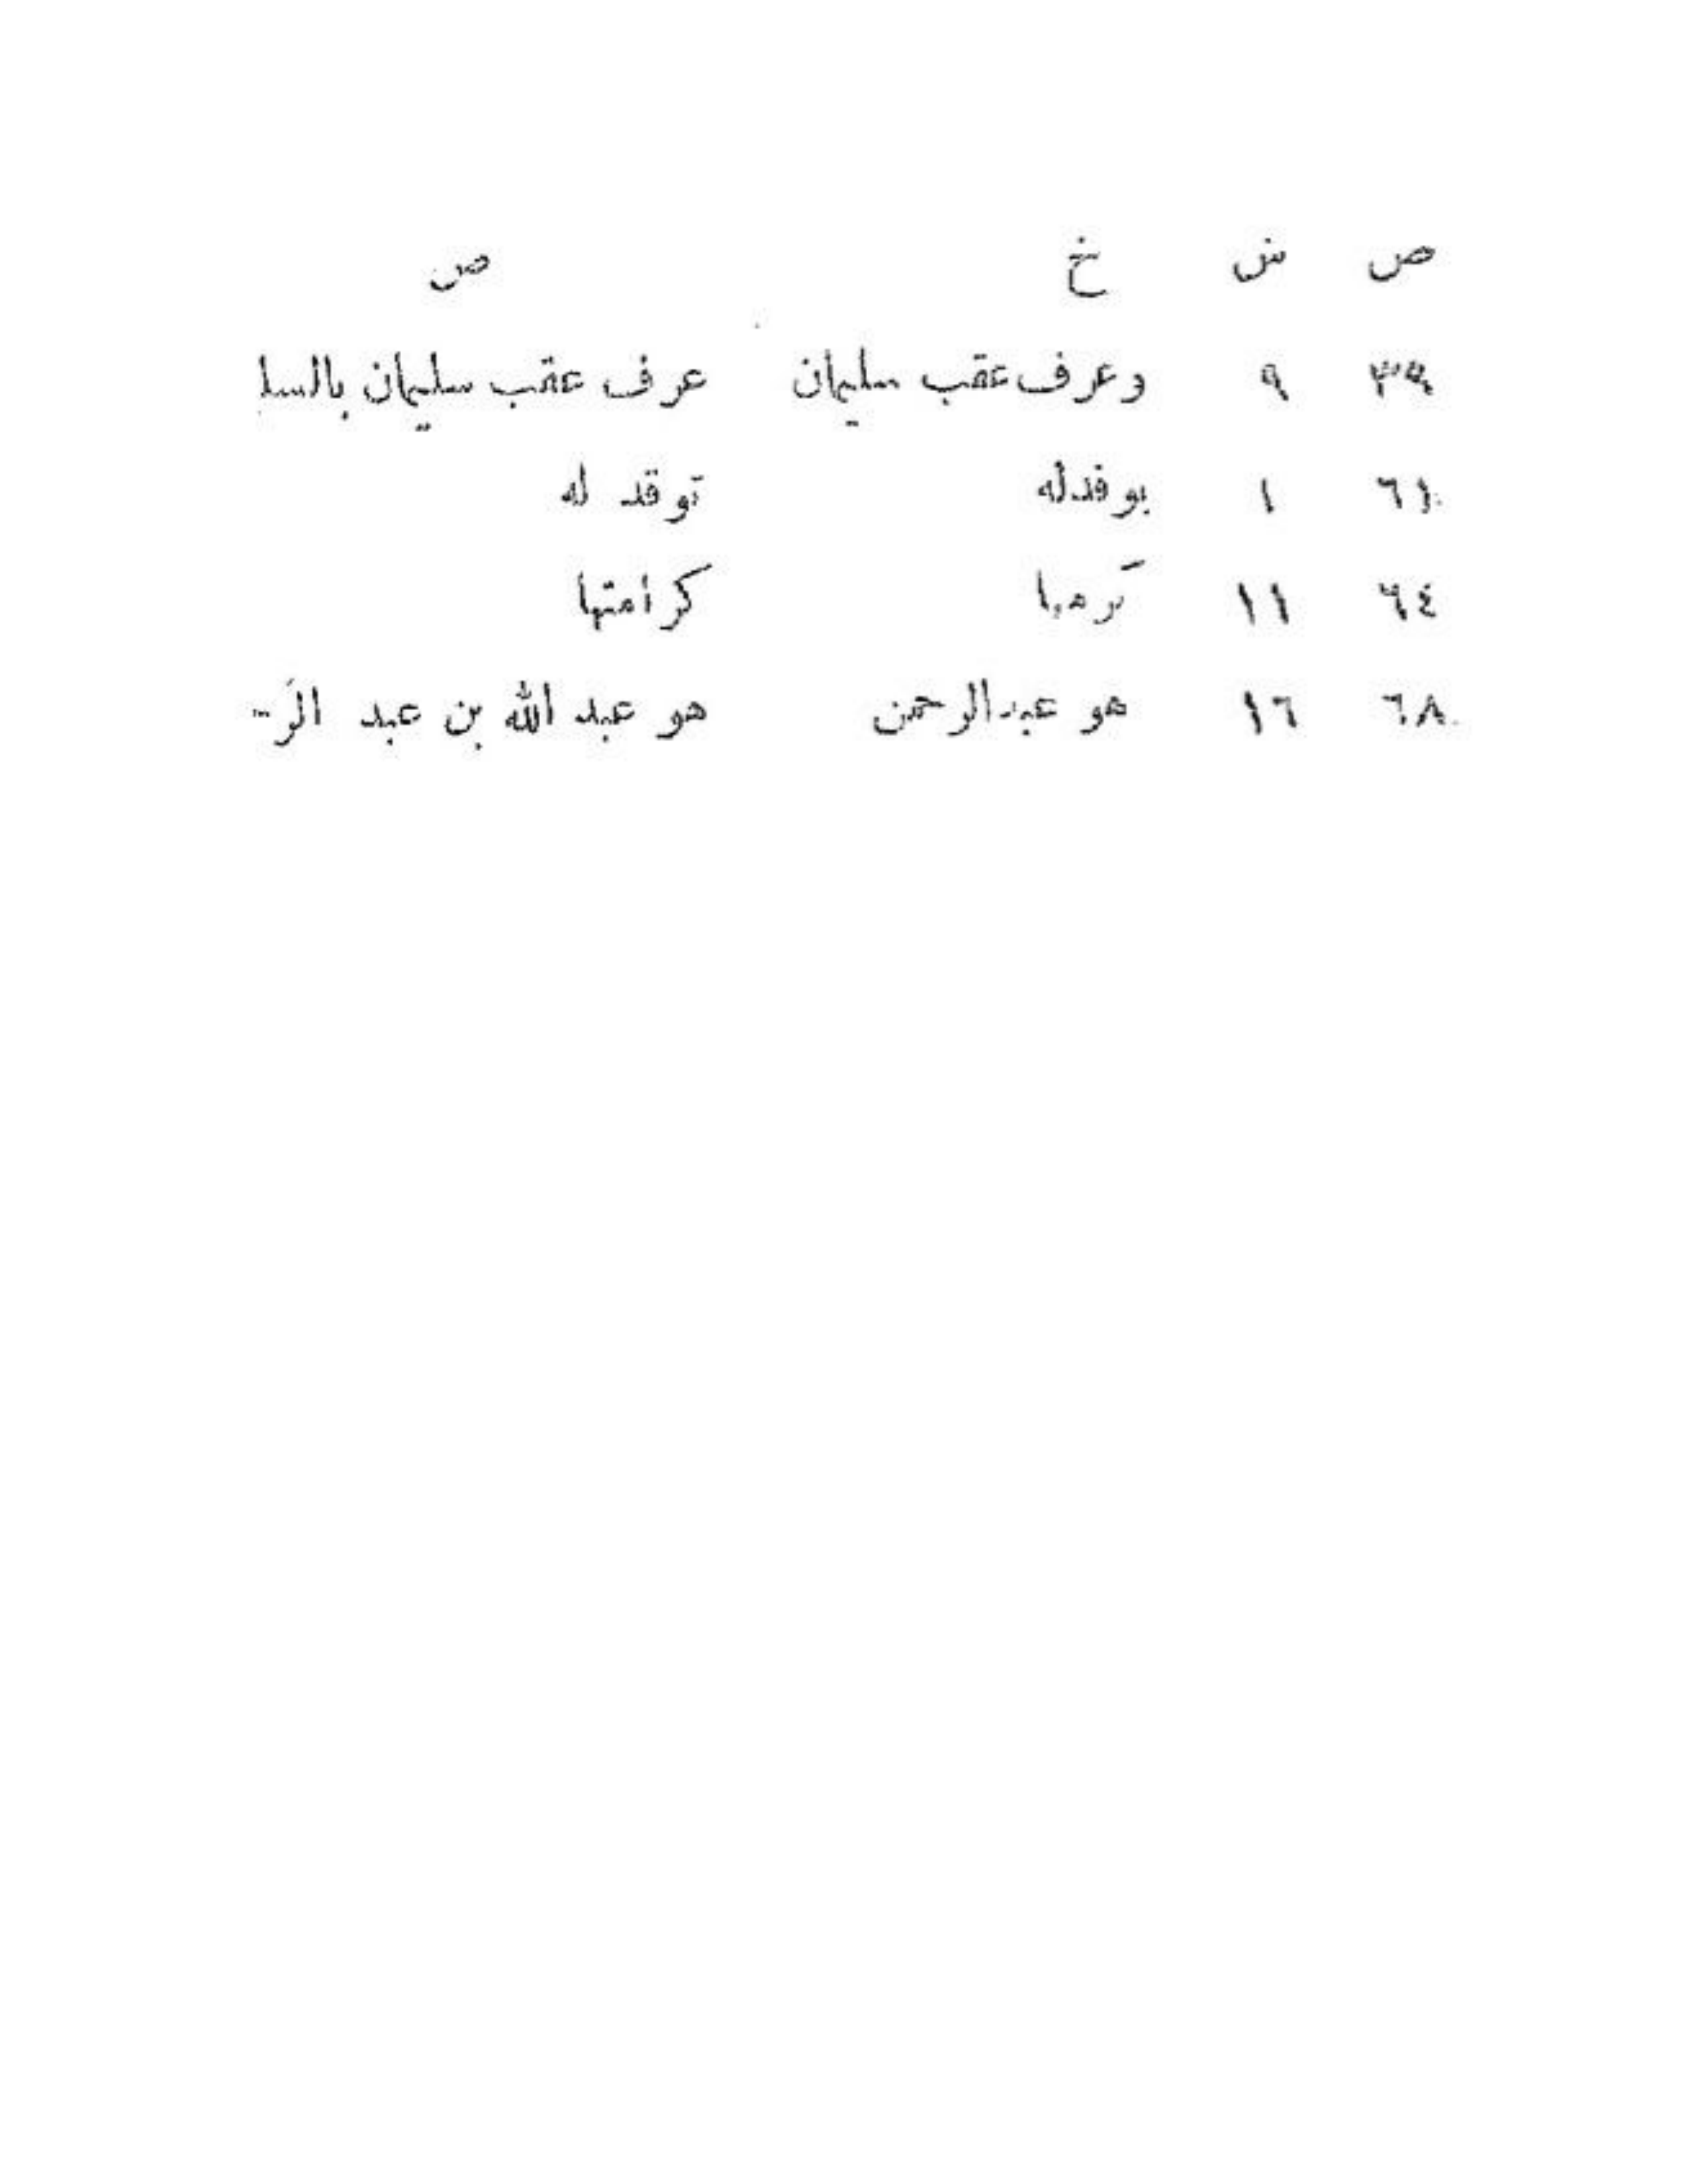 ص س خ ص
٣٩ ٩ وعرف عقب سليمان عرف عقب سليمان بالسلـ
٦١ ١ بوفدله توقد له
٦٤ ١١ كرامتها
٦٨ ١٦ هو عبدالرحمن هو عبد الله بن عبد الر